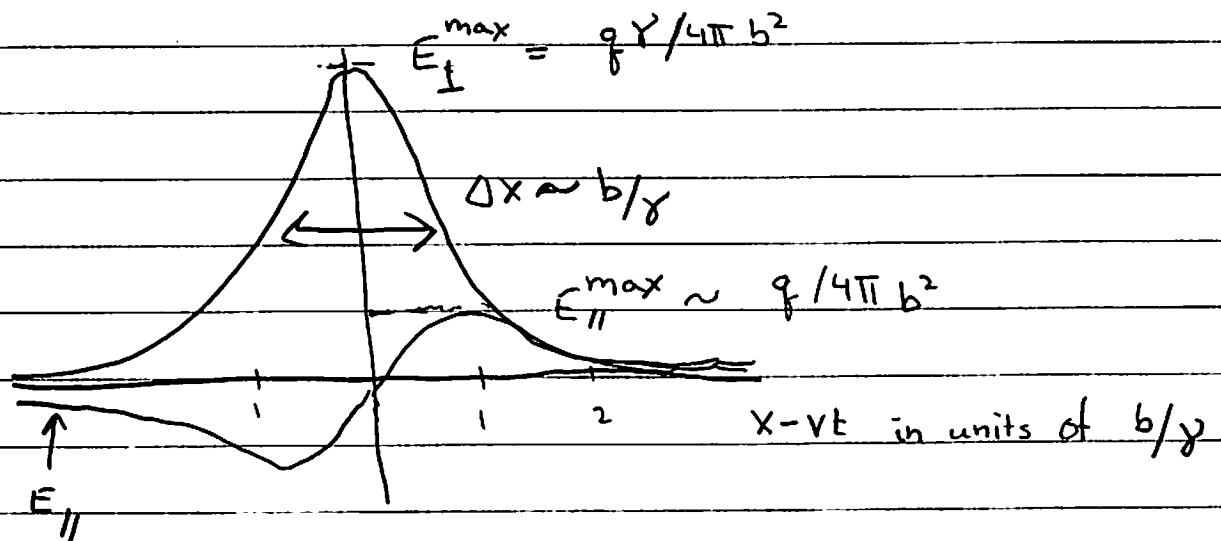 E⊥^max = qγ/4π b²
Δx ~ b/γ
E_//^max ~ q/4π b²
1 1 2 x-vt in units of b/γ
E_//